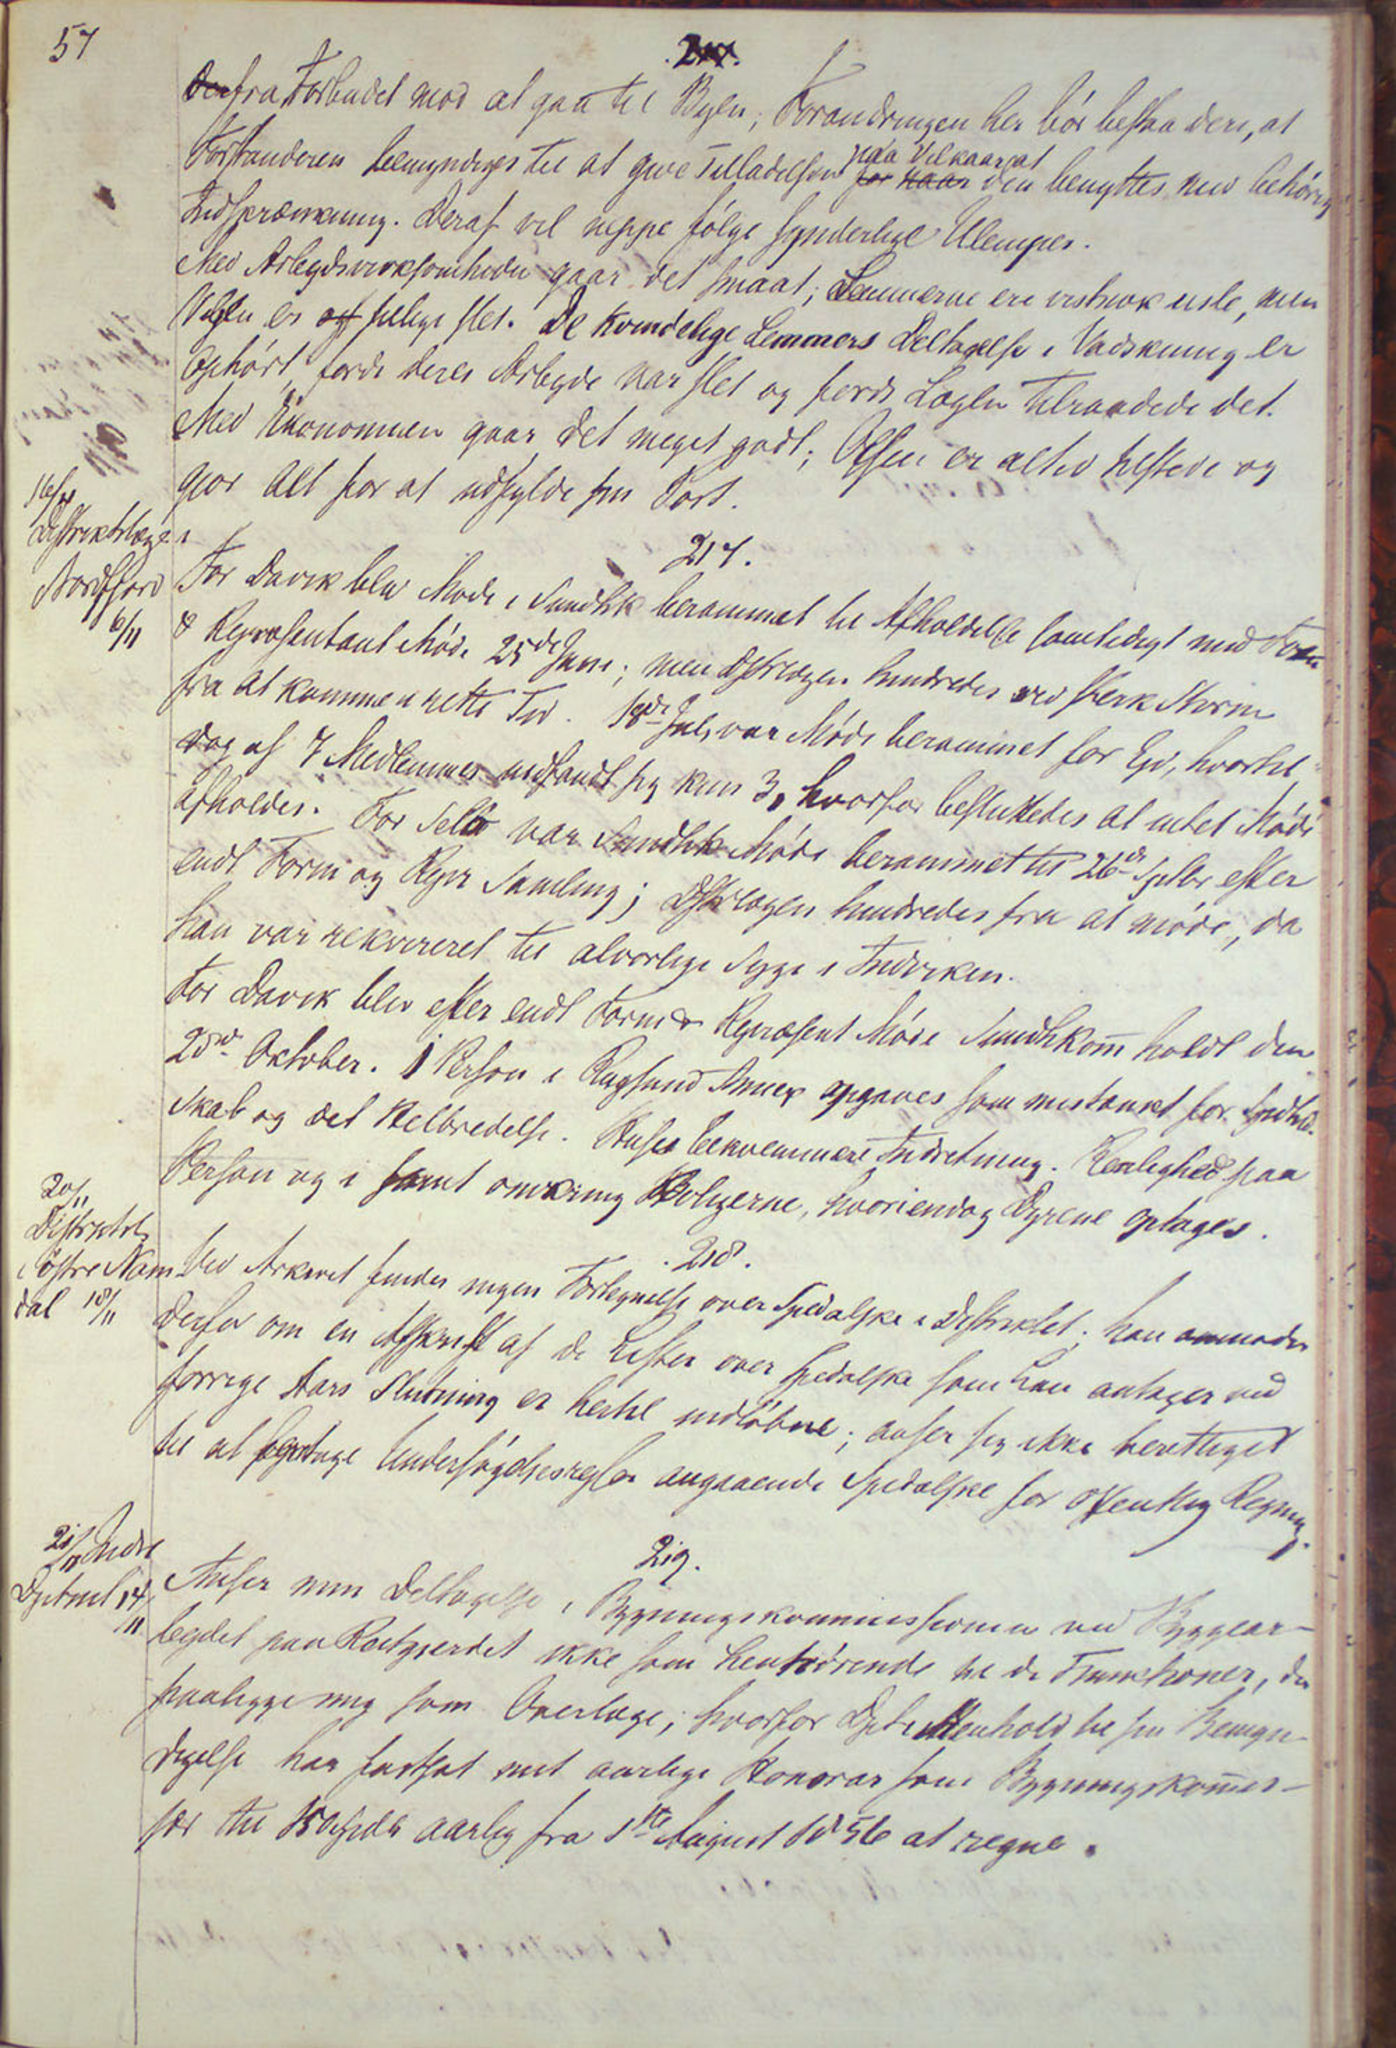 57
217.
Den fra Forbudet mod at gaa til Byen; Forandringen her bör bestaa deri, at
Forstanderen bemyndiges til at give Tilladelsen for naar paa Vilkaar at den benyttes med behörig
Indskrænkning. Deraf vil neppe fölge synderlige Ulemper.
Med Arbeydsvirksomheden gaar det smaat; Lemmerne ere vistnok usle, men
Vilgen er og heligt slet. De kvindelige Lemmers Deltagelse i Vadskning er
Ophört, fordi deres Arbeyde var slet og fordi Lægen tilraadede det.
Med Ökonomien gaar det meget godt; Olsen er altid tilstede og
gjör Alt for at udfylde sin Post.
16/11
Distriktslægen i
Nordfjord
6/11
217.
For Davik blev Möde i Sundhk berammet til Afholdelse samtidigt med Form
& Repræsentant Möde 25de Juni; men Dstrlægen hindredes ved stærk Storm
fra at komme i rette Tid. 18de Juli var Möde berammet for Eid, hvortil
dog af 7 Medlemmer indfandt sig kun 3, hvorfor besluttedes at intet Möde
afholdes. For Selö var Sundhk Möde berammet til 26de Septbr efter
endt Form og Repr Samling; Dstrlægen hindredes fra at möde, da
han var rekvireret til alvorlige Syge i Indviken.
For Davik blev efter endt Form & Repræsent Möde Sundhkomm holdt den
23de Oktober. 1 Person i Rugsund Annex opgaves som mistænkt for Spedk.
Skab og det Helbredelse. Huses bekvemmere Indretning. Renlighed paa
Person og i samt omkring Boligerne, hvoriendog Dyrene optages.
20/11
Distriktsl.
i östre Nam
dal 18/11
218.
Ved Arkivet findes ingen Fortegnelse over Spedalske i Distriktet; han anmoder
derfor om en Afskrift af de Lister over Spedalske som han antager ved
forrige Aars Slutning er hertil indlöbne; anser sig ikke berettiget
til at foretage Undersögelsesreiser angaaende Spedalske for offentlig Regning.
21/11 Indre
Dptmt 14/11
219.
Anser min Deltagelse i Bygningskommissionen ved Byggear-
beydet paa Reitgjerdet ikke som henhörende til de Funktioner, der
paaligge mig som Overlæge; hvorfor Dpt i Henhold til sin Bemyn-
digelse har fastsat mit aarlige Honorar som Bygningskommis-
sær til 150 Spdlr aarlig fra 1ste August 1856 at regne.